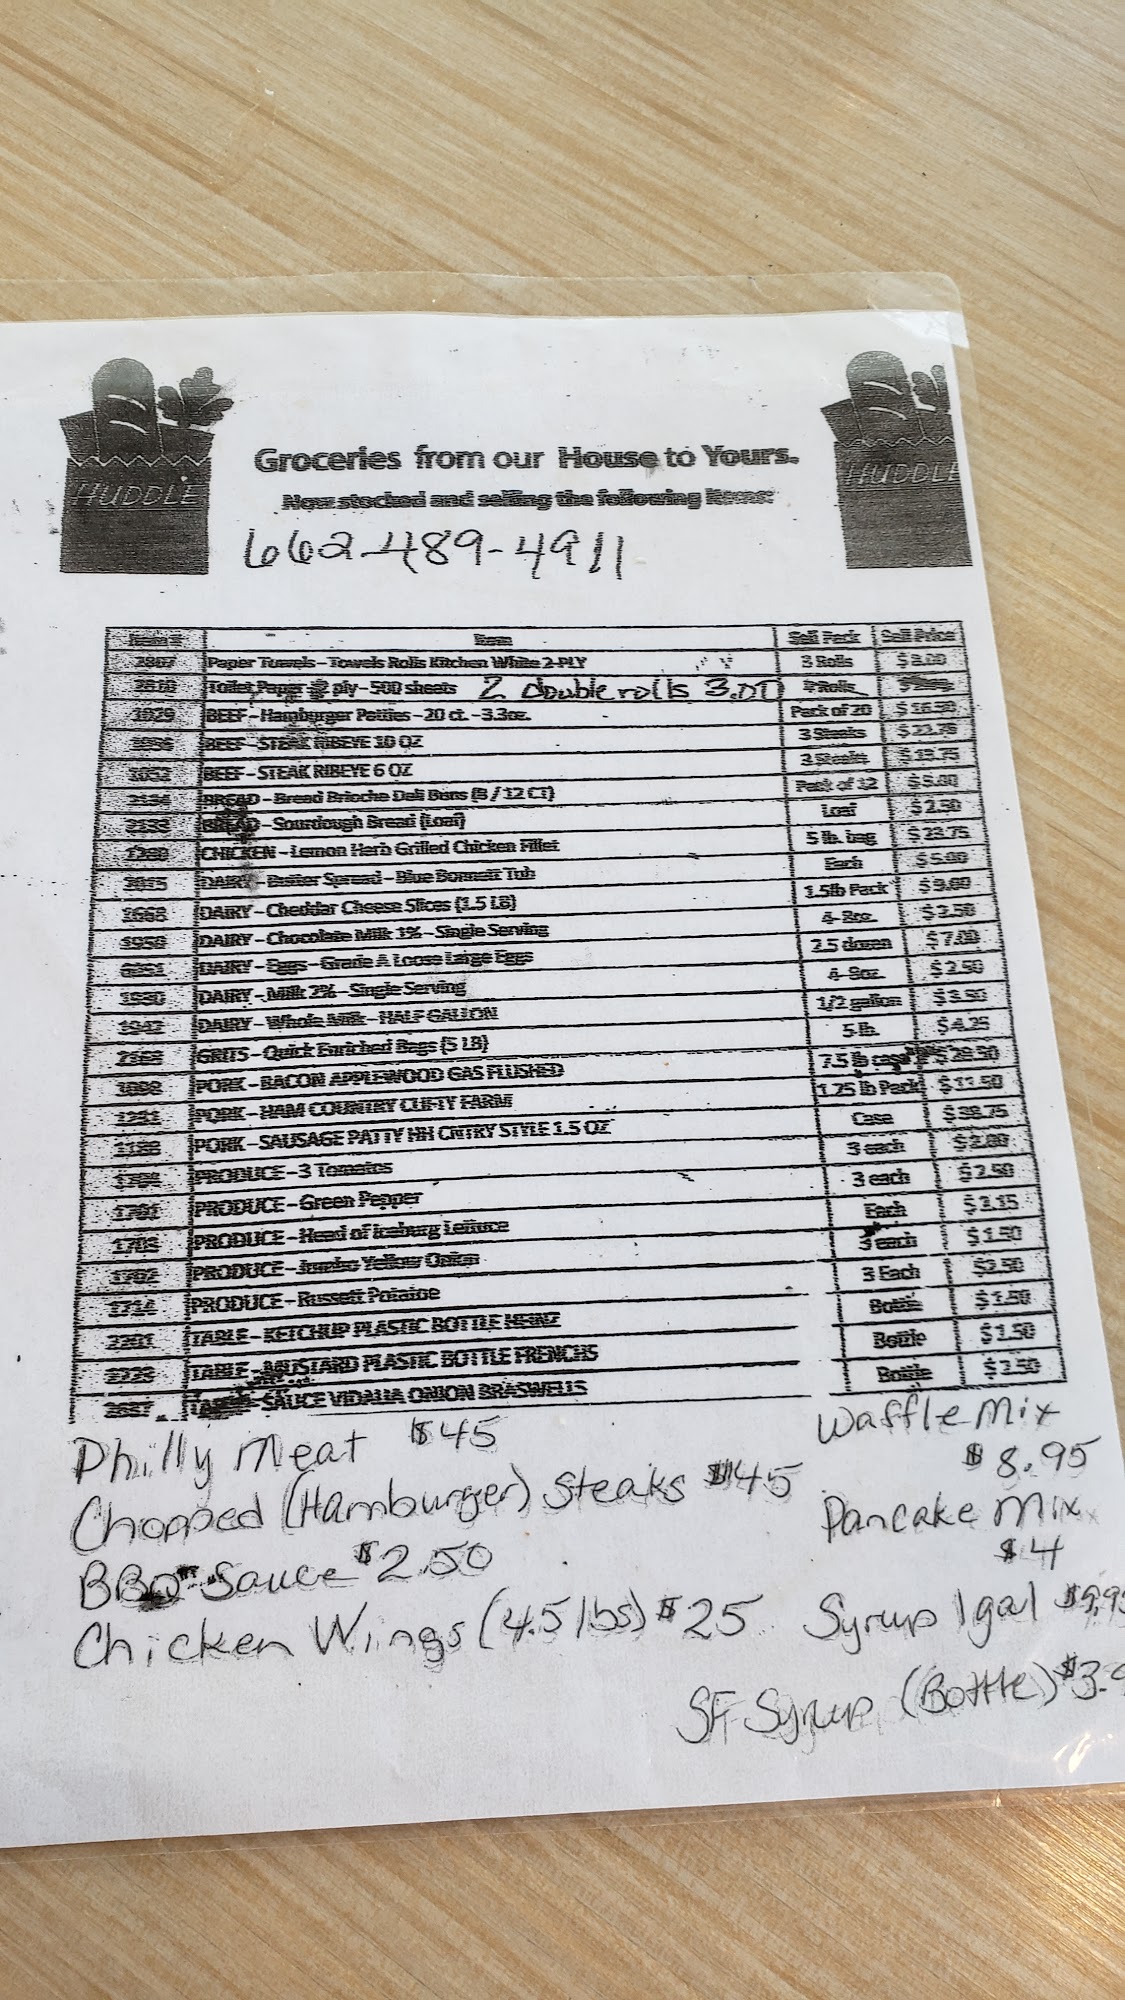 HUDDLE
HUDDLE
Groceries from our House to Yours.
Now stocked and selling the following items:
662-489-4911
Item # Item Sell Pack Sell Price
2807 Paper Towels - Towels Rolls Kitchen White 2-PLY 3 Rolls $3.00
2810 Toilet Paper 2 ply - 500 sheets 2 double rolls 3.00 Rolls
BEEF - Hamburger Patties - 20 ct. - 3.3oz. Pack of 20 $16.50
BEEF - STEAK RIBEYE 10 OZ 3 Steaks $22.75
BEEF - STEAK RIBEYE 6 OZ 3 Steaks $13.75
BREAD - Bread Brioche Deli Buns (8 / 12 CT) Pack of 12 $5.00
BREAD - Sourdough Bread (Loaf) Loaf $2.50
CHICKEN - Lemon Herb Grilled Chicken Fillet 5 lb. bag $23.75
DAIRY - Butter Spread - Blue Bonnett Tub Each $5.00
DAIRY - Cheddar Cheese Slices (1.5 LB) 1.5lb Pack $9.00
DAIRY - Chocolate Milk 1% - Single Serving 4- 8oz.
DAIRY - Eggs - Grade A Loose Large Eggs 2.5 dozen $7.00
DAIRY - Milk 2% - Single Serving 4- 8oz. $2.50
DAIRY - Whole Milk - HALF GALLON 1/2 gallon $3.50
GRITS - Quick Enriched Bags (5 LB) 5 lb. $4.25
PORK - BACON APPLEWOOD GAS FLUSHED 7.5 lb case
PORK - HAM COUNTRY CLIFTY FARM 1.25 lb Pack $11.50
PORK - SAUSAGE PATTY HH CNTRY STYLE 1.5 OZ Case $38.75
PRODUCE - 3 Tomatos 3 each $2.00
PRODUCE - Green Pepper 3 each $2.50
PRODUCE - Head of Iceburg Lettuce Each
PRODUCE - Jumbo Yellow Onion 3 each $1.50
PRODUCE - Russett Potatoe 3 Each $2.50
TABLE - KETCHUP PLASTIC BOTTLE HEINZ Bottle $1.50
TABLE - MUSTARD PLASTIC BOTTLE FRENCHS Bottle $1.50
SAUCE VIDALIA ONION BRASWELLS Bottle
Philly Meat $45
Waffle Mix
$8.95
Chopped (Hamburger) Steaks $45
Pancake Mix
$4
BBQ Sauce $2.50
Chicken Wings (4.5 lbs) $25
Syrup 1 gal
SF Syrup (Bottle)